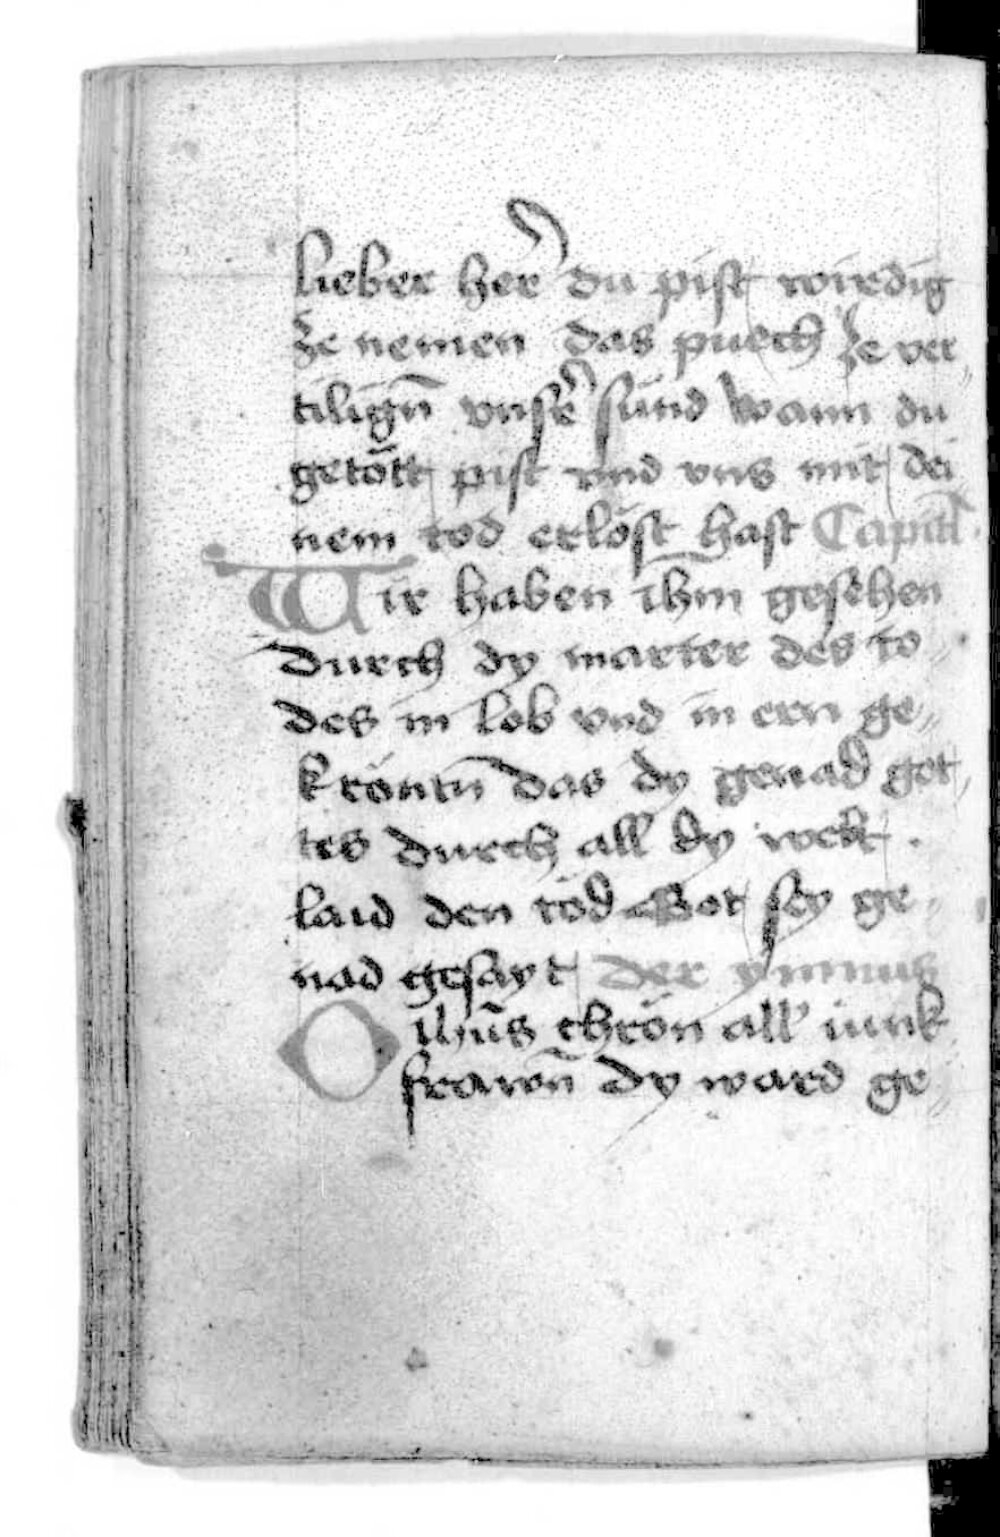 lieber her̃ du pist wirdig
ze nemen das puech ze ver„
tilign̄ vnser̃ sünd wann du
getött pist vnd vns mit dei
nem tod erlöst hast Capitl̃
Wir haben ih̄m gesehen
durch dy marter des to„
des in lob vnd in ern ge„
kröntn̄ das dy genad got„
tes durch all dy welt .
laid den töd Got sey ge„
nad gesayt der ymnus
O ih̄us chrön all iunk„
frawn̄ dy ward ge„